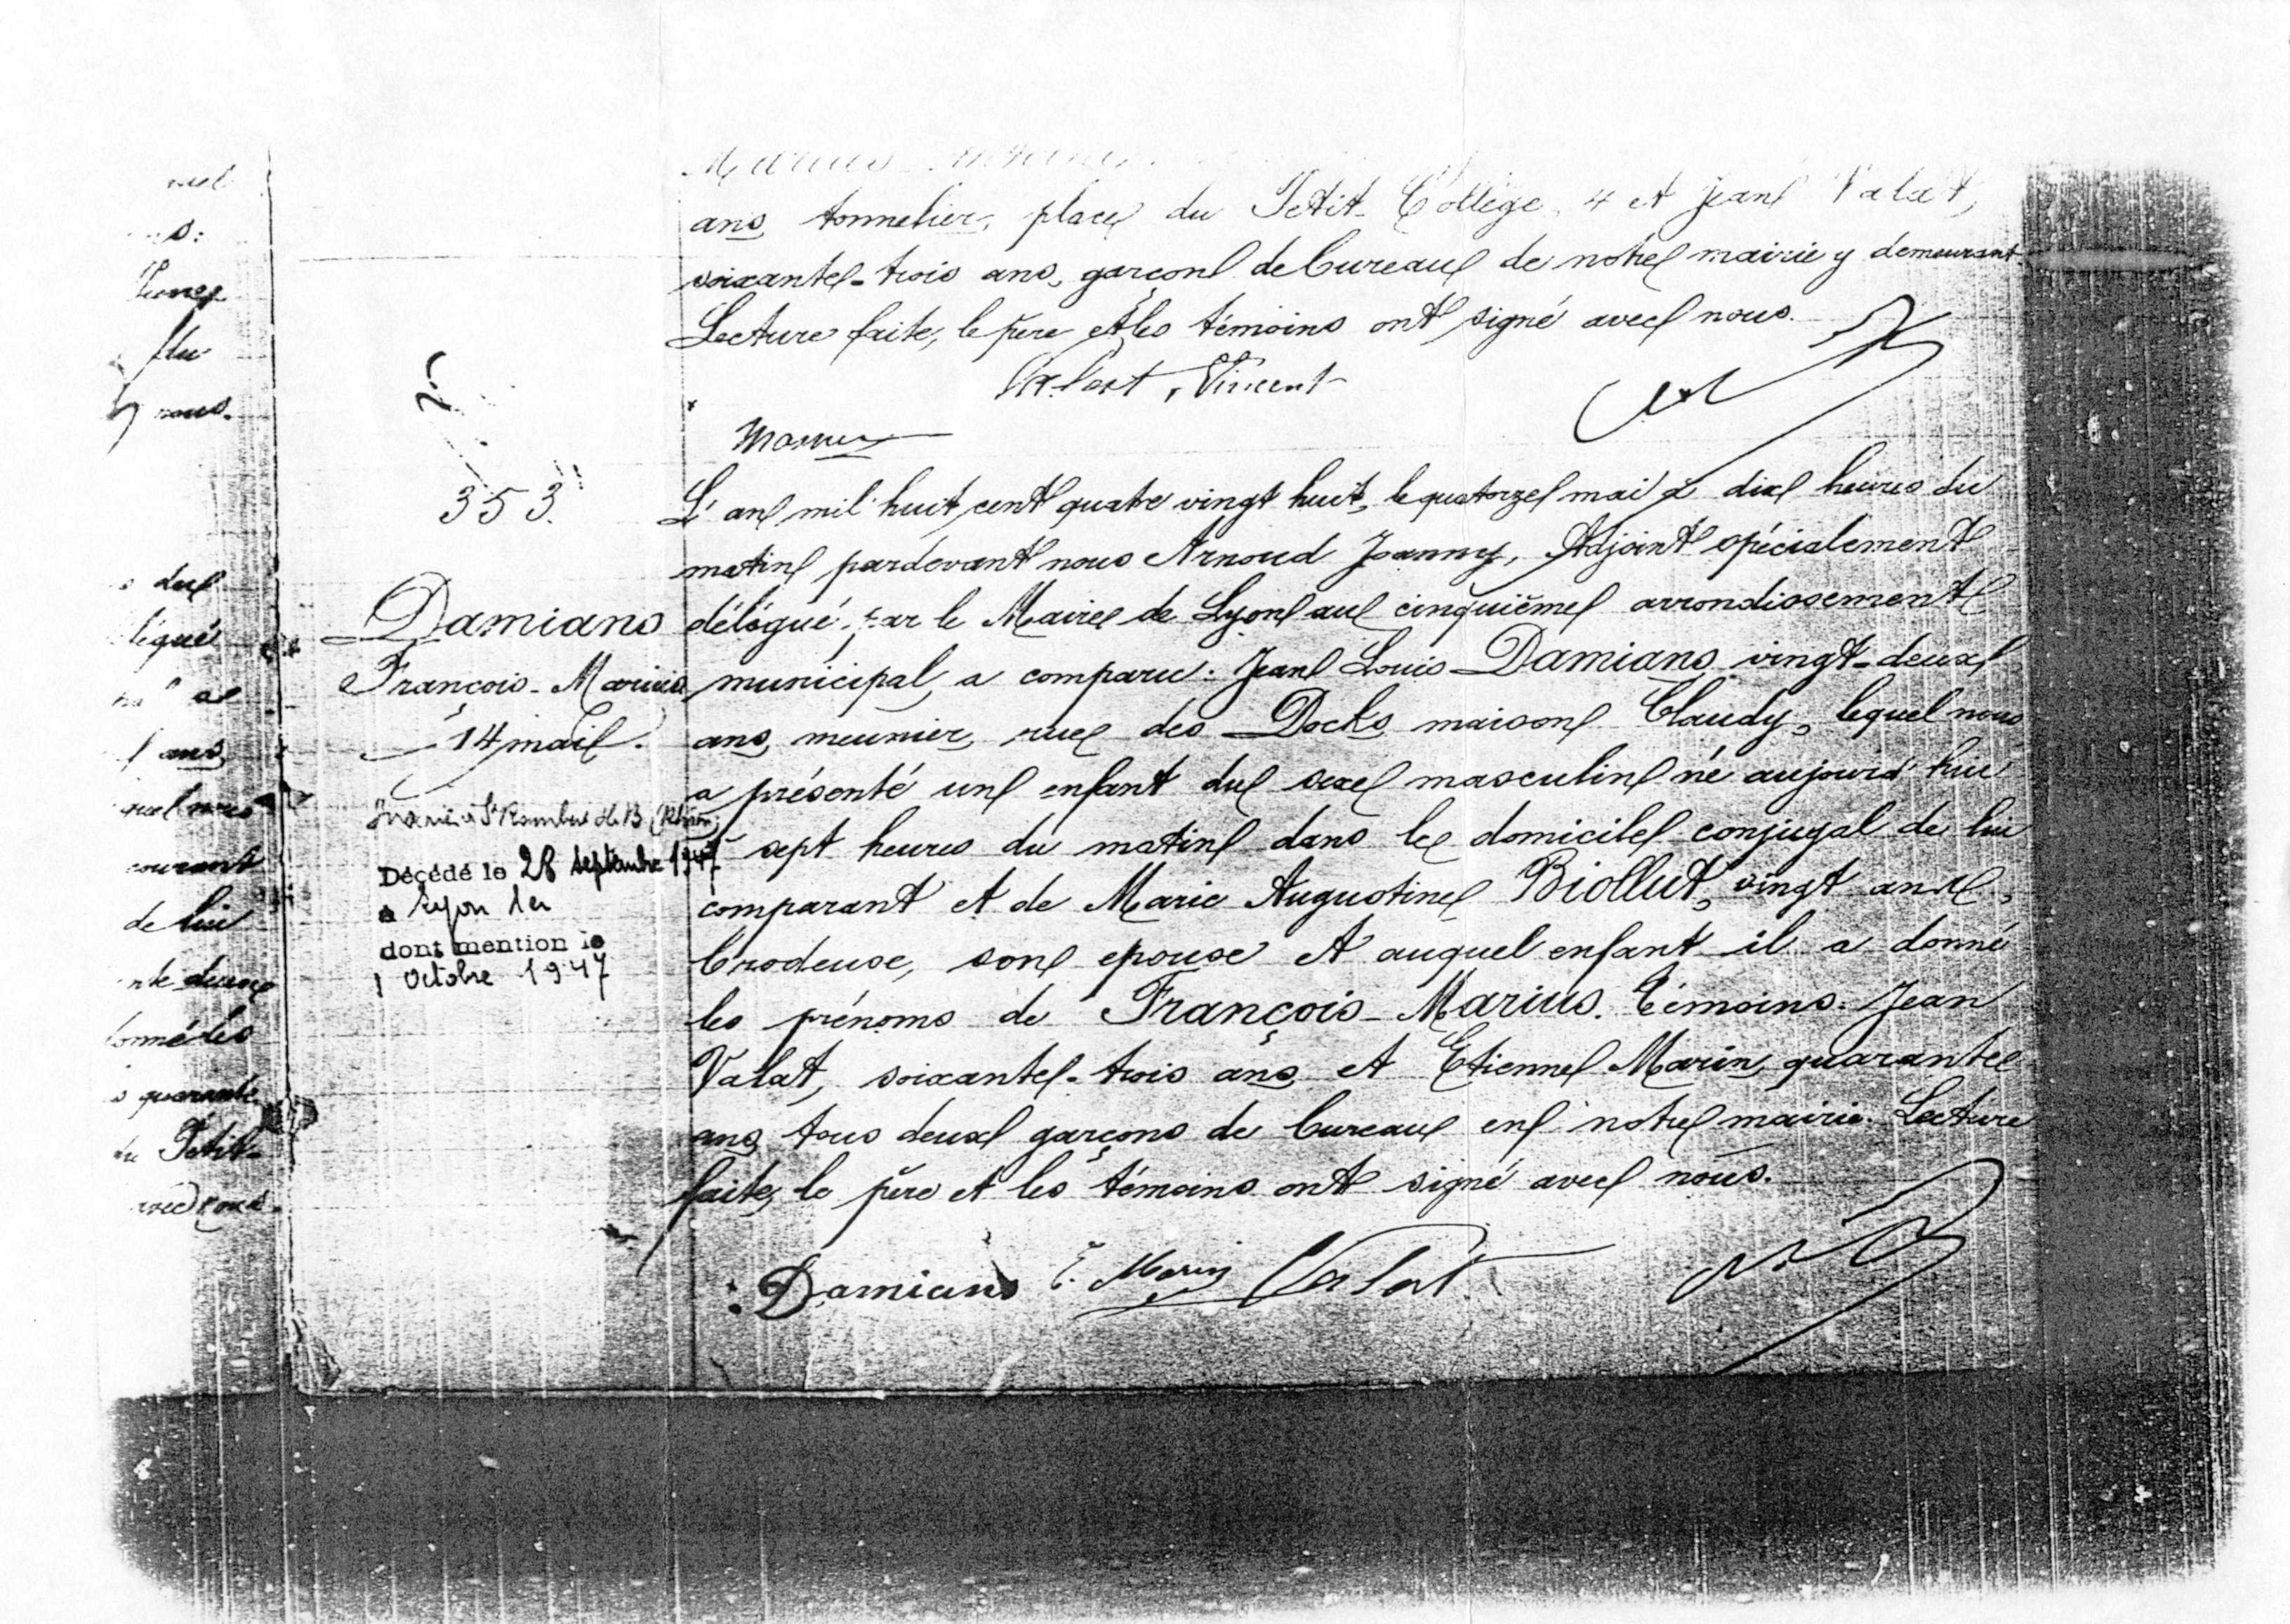 ans, tonnelier, place du Petit-Collège, 4 et Jean Valat,
soixante-trois ans, garçon de bureau de notre mairie y demeurant
Lecture faite, le père et les témoins ont signé avec nous.
Valat, Vincent
353.
Damiano
François-Marius
14 mai.
Décédé le 28 septembre 1947
à Lyon 1er
dont mention le
1 Octobre 1947
L'an mil huit cent quatre vingt huit, le quatorze mai à dix heures du
matin pardevant nous Arnoud Joanny, Adjoint spécialement
délégué par le Maire de Lyon au cinquième arrondissement
municipal, a comparu: Jean Louis Damiano, vingt-deux
ans, meunier, rue des Docks maison Claudy, lequel nous
a présenté un enfant du sexe masculin né aujourd'hui
à sept heures du matin dans le domicile conjugal de lui
comparant et de Marie Augustine Biollut, vingt ans,
brodeuse, son épouse et auquel enfant il a donné
les prénoms de François-Marius. Témoins: Jean
Valat, soixante-trois ans et Etienne Marin, quarante
ans, tous deux garçons de bureau en notre mairie. Lecture
faite, le père et les témoins ont signé avec nous.
Damiano E. Marin Valat